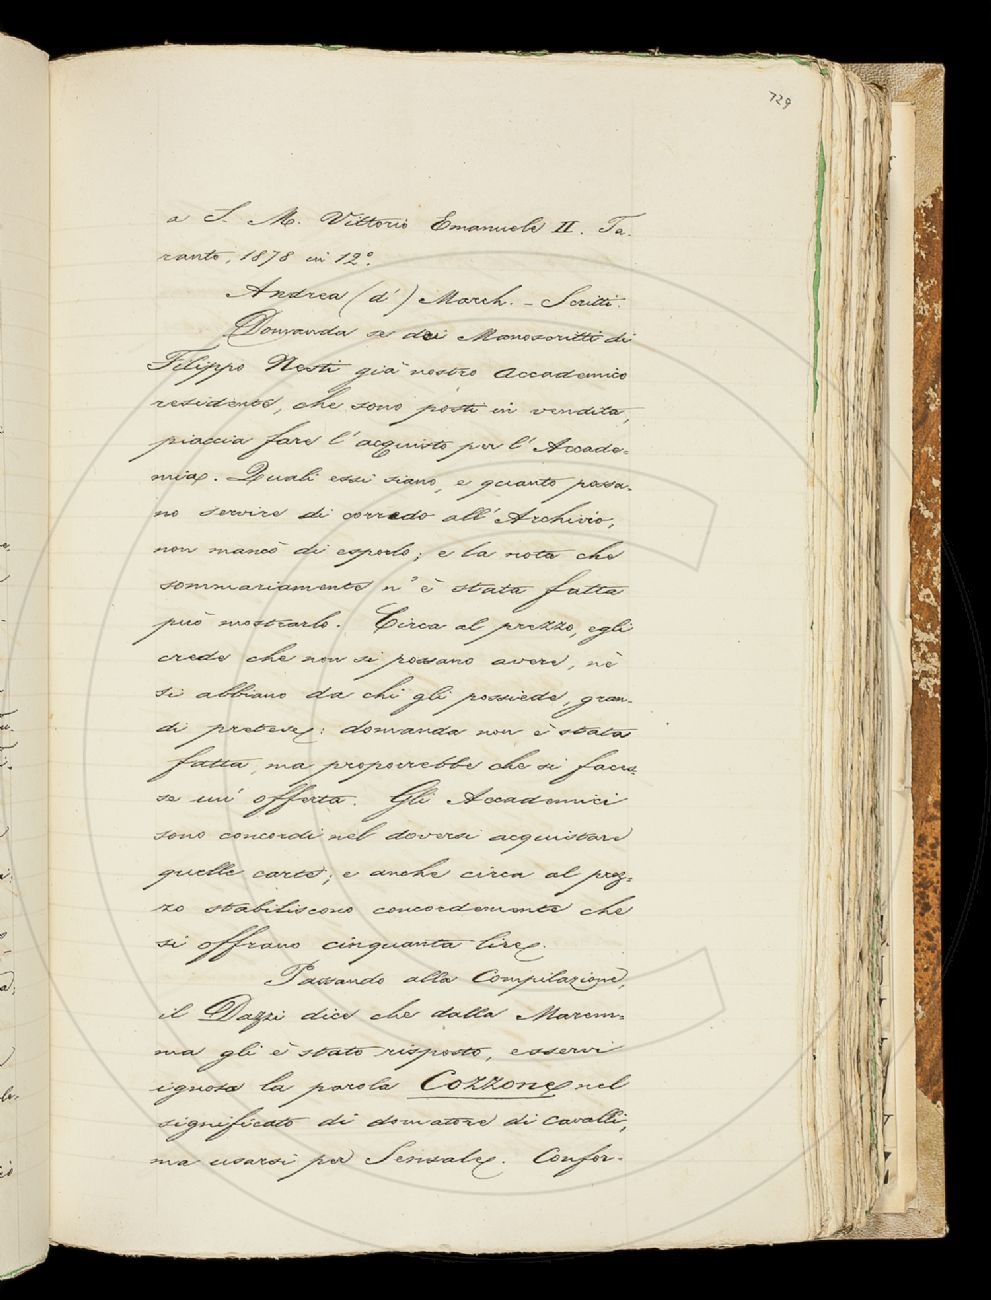 729
a S. M. Vittorio Emanuele II. Ta-
ranto, 1878 in 12.º
Andrea (d') March. - Scritti.
Domanda se dei Manoscritti di
Filippo Nesti già nostro Accademico
residente, che sono posti in vendita,
piaccia fare l'acquisto per l'Accade-
mia. Quali essi siano, e quanto possa-
no servire di corredo all'Archivio,
non mancò di esporlo; e la nota che
sommariamente n'è stata fatta
può mostrarlo. Circa al prezzo, egli
crede che non si possano avere, nè
si abbiano da chi gli possiede, gran-
di pretese: domanda non è stata
fatta, ma proporrebbe che si faces-
se un'offerta. Gli Accademici
sono concordi nel doversi acquistare
quelle carte; e anche circa al prez-
zo stabiliscono concordemente che
si offrano cinquanta lire.
Passando alla Compilazione,
il Dazzi dice che dalla Marem-
ma gli è stato risposto, esservi
ignota la parola Cozzone nel
significato di domatore di cavalli,
ma usarsi per Sensale. Confor-